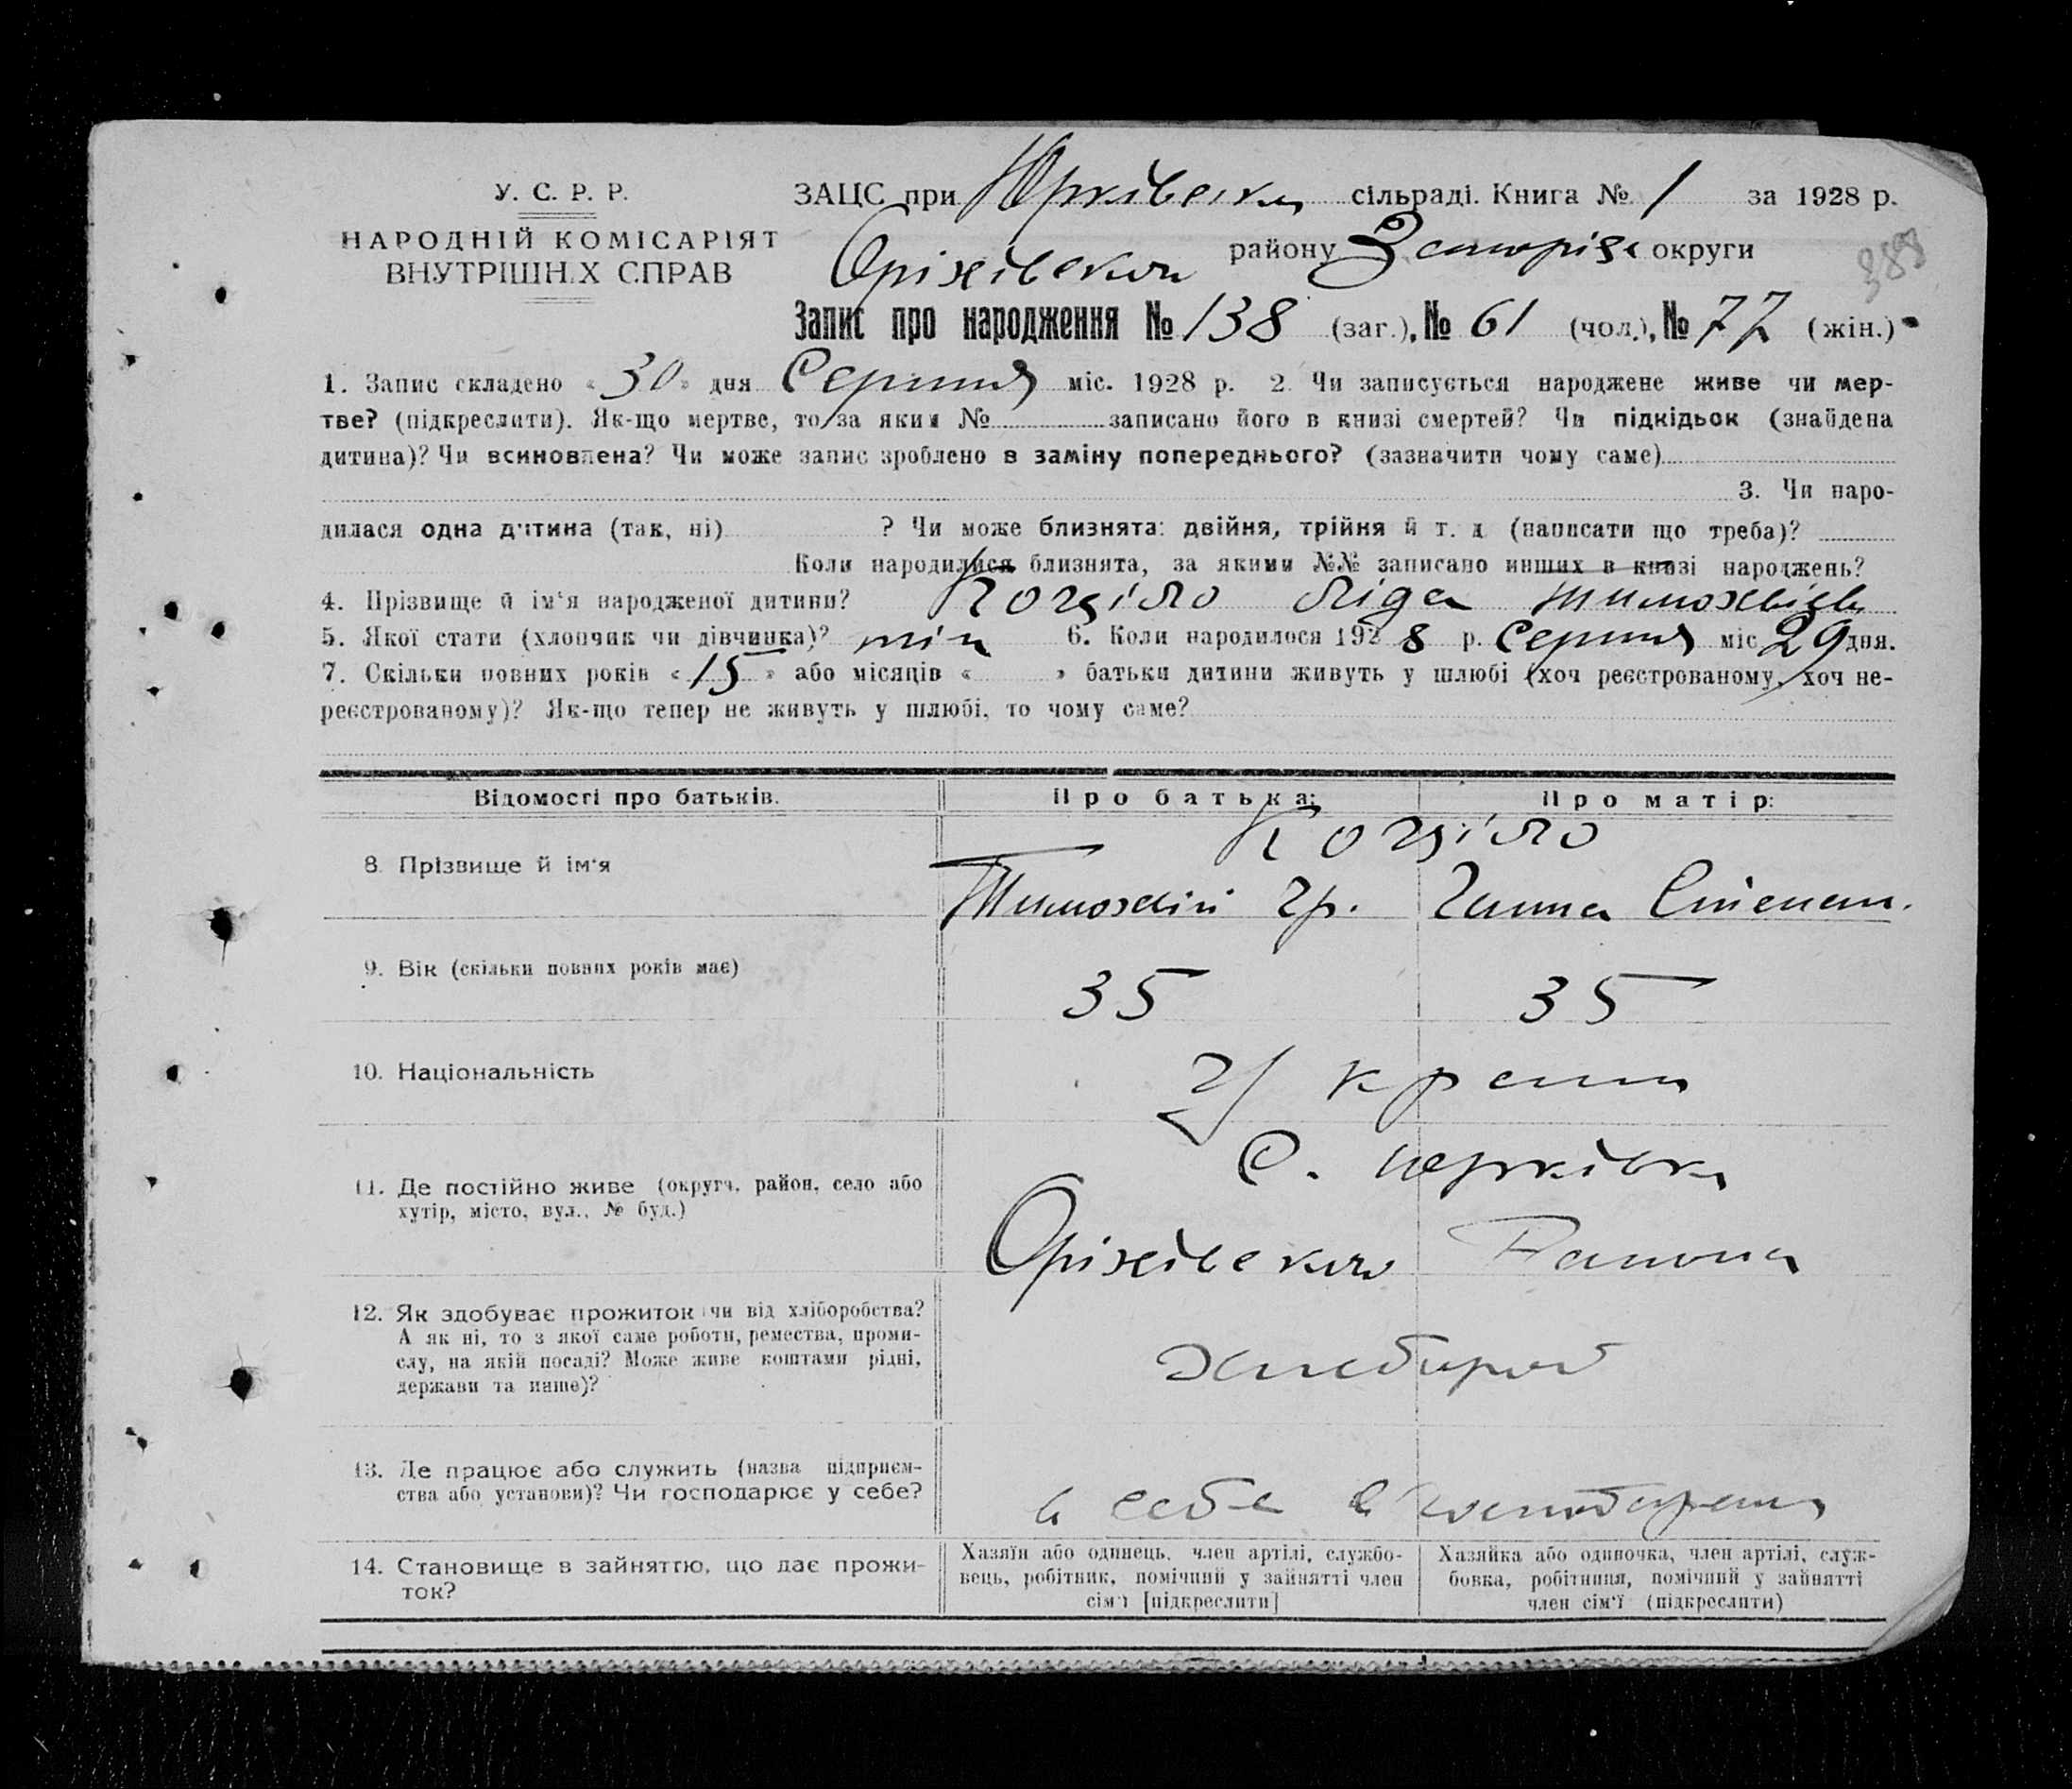 У. С. Р. Р.
НАРОДНІЙ КОМІСАРІЯТ
ВНУТРІШН.Х СПРАВ
ЗАЦС при Юрківські сільраді. Книга № 1 за 1928 р.
Оріхівского району Запоріз. округи
388
Запис про народження № 138 (заг.), № 61 (чол.), № 77 (жін.)
1. Запис складено « 30 » дня Серпня міс. 1928 р. 2. Чи записується народжене живе чи мер-
тве? (підкреслити). Як-що мертве, то за яким № записано його в книзі смертей? Чи підкідьок (знайдена
дитина)? Чи всиновлена? Чи може запис зроблено в заміну попереднього? (зазначити чому саме)
3. Чи наро-
дилася одна дитина (так, ні) ? Чи може близнята: двійня, трійня й т. д (написати що треба)?
Коли народилися близнята, за якими №№ записано инших в книзі народжень?
4. Прізвище й ім'я народженої дитини? Ліда
5. Якої стати (хлопчик чи дівчинка)? жін 6. Коли народилося 1928 р. Серпня міс 29 дня.
7. Скільки повних років « 15 » або місяців « » батьки дитини живуть у шлюбі (хоч реєстрованому, хоч не-
реєстрованому)? Як-що тепер не живуть у шлюбі, то чому саме?
Відомості про батьків. Про батька: Про матір:
8. Прізвище й ім'я Тимохвій Гр. Ганна Степан.
9. Вік (скільки повних років має) 35 35
10. Національність Украін
11. Де постійно живе (округа, район, село або
хутір, місто, вул., № буд.)
С. Юрківка
Оріхівского Району
12. Як здобуває прожиток чи від хліборобства?
А як ні, то з якої саме роботи, ремества, проми-
слу, на якій посаді? Може живе коштами рідні,
держави та инше)?
Хлебороб
13. Де працює або служить (назва підприєм-
ства або установи)? Чи господарює у себе?
в себе в
14. Становище в зайняттю, що дає прожи-
ток?
Хазяїн або одинець, член артілі, службо-
вець, робітник, помічний у зайнятті член
сім'ї [підкреслити]
Хазяйка або одиночка, член артілі, служ-
бовка, робітниця, помічний у зайнятті
член сім'ї (підкреслити)